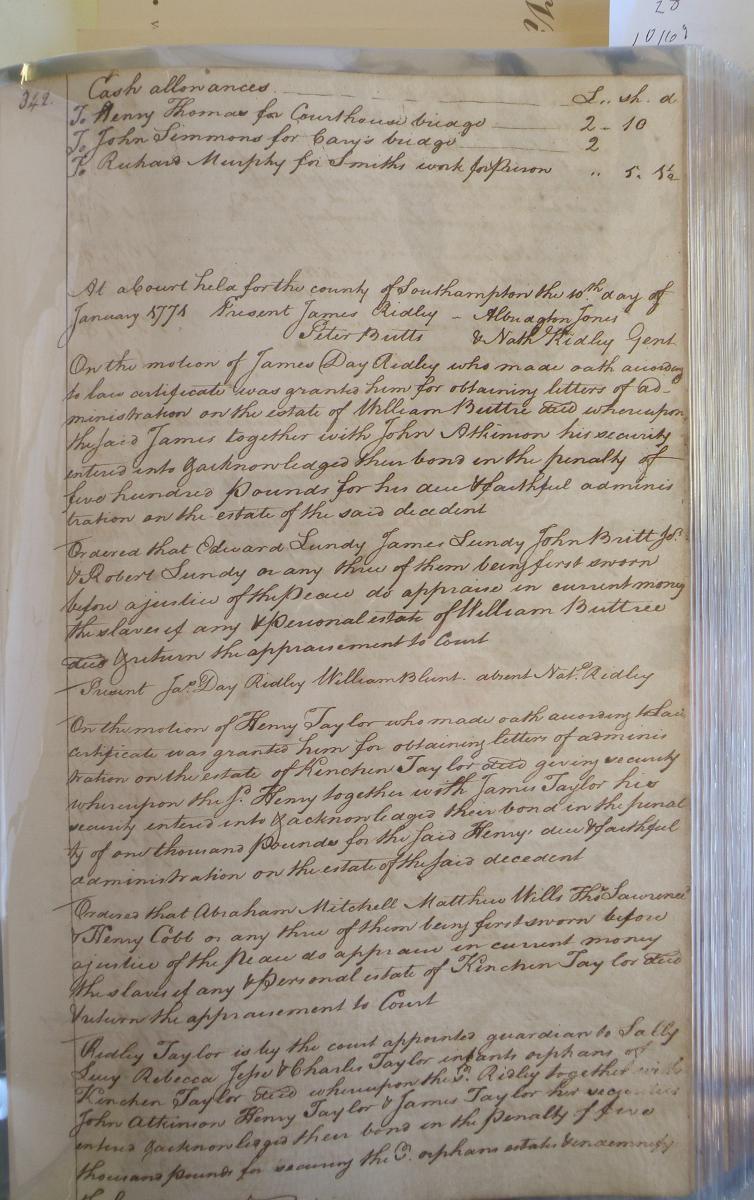 342.
Cash allowances £.. sh. d
To Henry Thomas for Courthouse bridge 2 - 10
To John Simmons for Cary's bridge 2
To Richard Murphy for Smiths work for Prison .. 5. 5½
At a Court held for the county of Southampton the 10th day of
January 1771 Present James Ridley - Albridgton Jones
Peter Butts & Nath Ridley Gent
On the motion of James Day Ridley who made oath according
to law certificate was granted him for obtaining letters of ad-
ministration on the estate of William Buttre decd whereupon
the said James together with John Atkinson his security
entered into & acknowledged their bond in the penalty of
five hundred Pounds for his due & faithful adminis
tration on the estate of the said decedent
Ordered that Edward Lundy James Lundy John Britt Jr.
& Robert Lundy or any three of them being first sworn
before a justice of the Peace do appraise in current money
the slaves if any & Personal estate of William Buttree
decd & return the appraisement to Court
Present Jas. Day Ridley William Blunt. absent Natl. Ridley
On the motion of Henry Taylor who made oath according to Law
certificate was granted him for obtaining letters of adminis
tration on the estate of Kinchen Taylor decd giving security
whereupon the sd. Henry together with James Taylor his
security entered into & acknowledged their bond in the penal
ty of one thousand Pounds for the said Henry's due & faithful
administration on the estate of the said decedent
Ordered that Abraham Mitchell Matthew Wills Thos Lawrence
& Henry Cobb or any three of them being first sworn before
a justice of the Peace do appraise in current money
the slaves if any & Personal estate of Kinchen Taylor decd
& return the appraisement to Court
Ridley Taylor is by the court appointed guardian to Sally
Lucy Rebecca Jesse & Charles Taylor infants orphans of
Kinchen Taylor decd whereupon the sd. Ridley together with
John Atkinson Henry Taylor & James Taylor her securities
entered & acknowledged their bond in the Penalty of five
thousand Pounds for securing the sd. orphans estates & indemnify